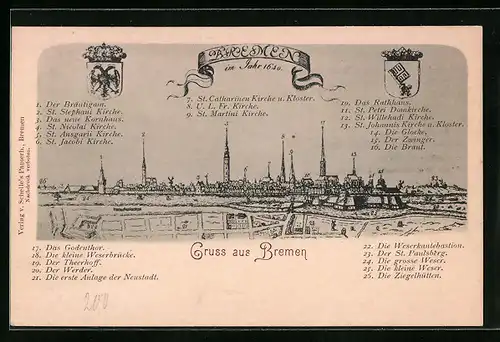 BREMEN
im Jahr 1640.
1. Der Bräutigam.
2. St. Stephani Kirche.
3. Das neue Kornhaus.
4. St. Nicolai Kirche.
5. St. Ansgarii Kirche.
6. St. Jacobi Kirche.
7. St. Catharinen Kirche u. Kloster.
8. U. L. Fr. Kirche.
9. St. Martini Kirche.
10. Das Rathhaus.
11. St. Petri Domkirche.
12. St. Willehadi Kirche.
13. St. Johannis Kirche u. Kloster.
14. Die Glocke,
15. Der Zwinger.
16. Die Braut.
17. Das Godenthor.
18. Die kleine Weserbrücke.
19. Der Theerhoff.
20. Der Werder.
21. Die erste Anlage der Neustadt.
Gruss aus Bremen
22. Die Weserkantebastion.
23. Der St. PaulsbErg.
24. Die grosse Weser.
25. Die kleine Weser.
26. Die Ziegelhütten.
Verlag v. Schelle's Panorb., Bremen
Nachdruck verboten.